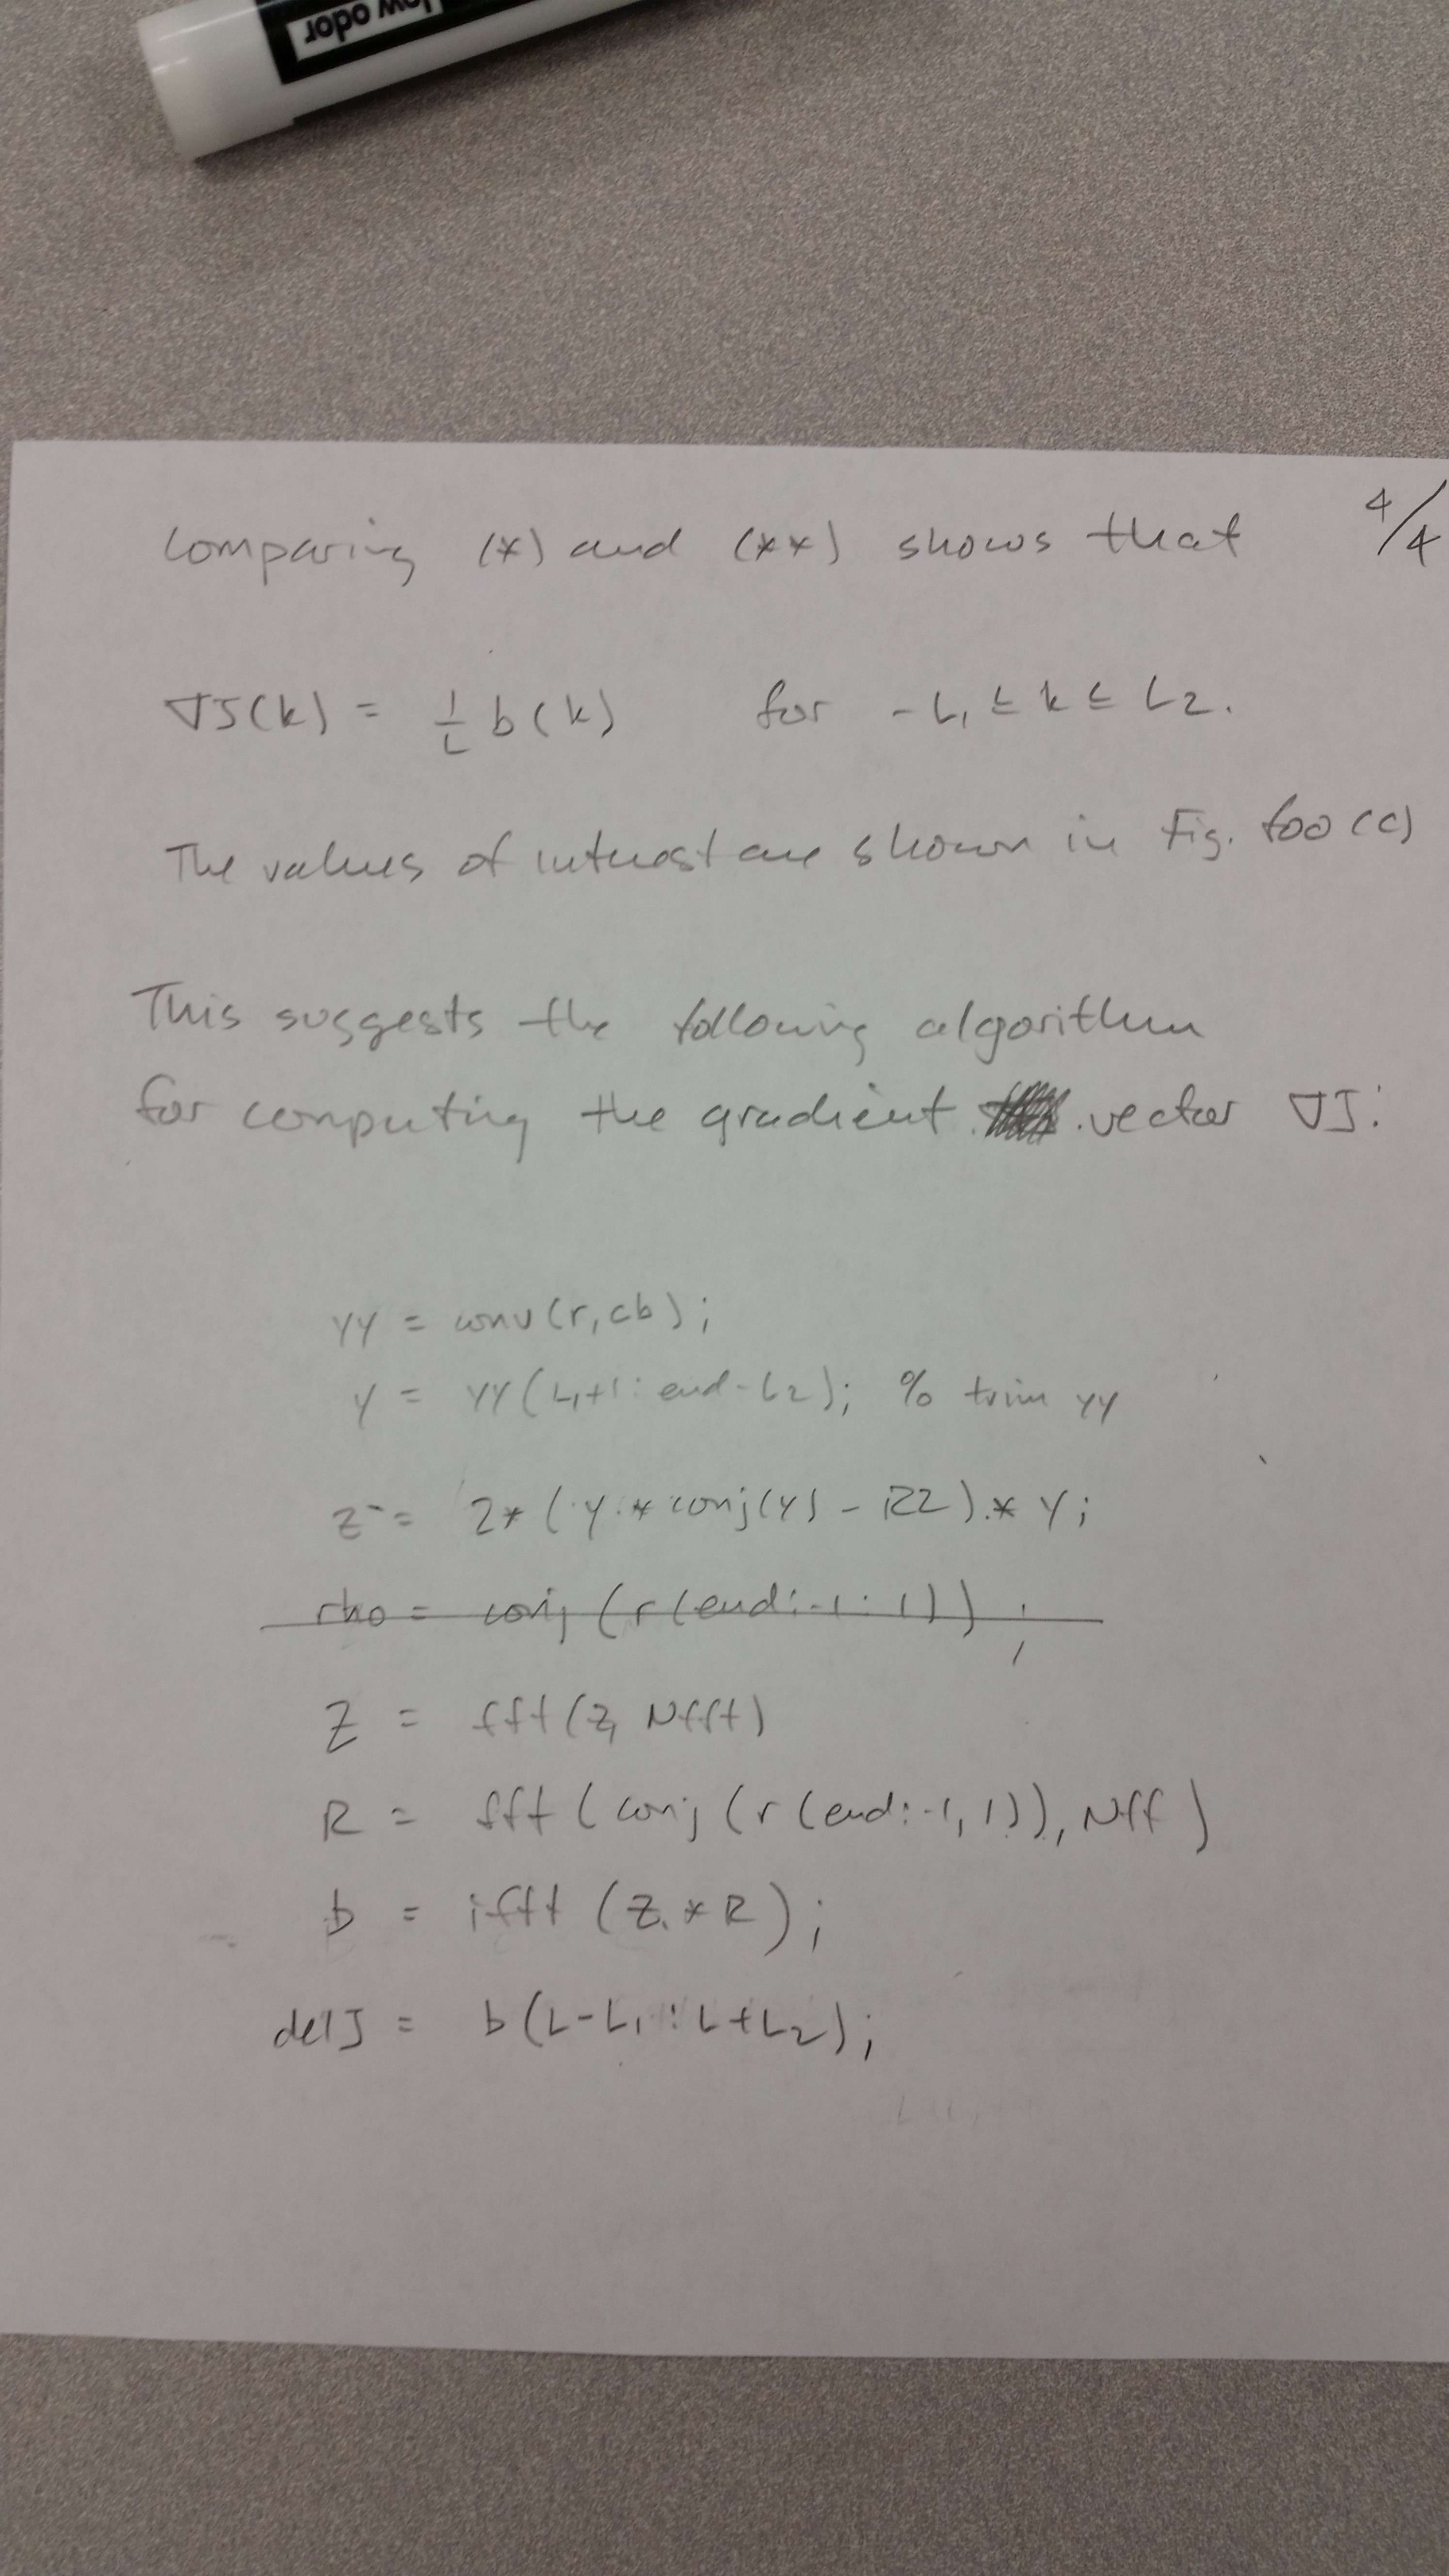 low odor
4/4
Comparing (*) and (**) shows that
∇J(k) = 1/L b(k) for -L1 ≤ k ≤ L2.
The values of interest are shown in Fig. foo (c)
This suggests the following algorithm
for computing the gradient vector ∇J:
yy = conv(r,cb);
y = yy(L1+1:end-L2); % trim yy
z = 2*(y.*conj(y) - R2).*y;
rho = conj(r(end:-1:1));
Z = fft(z, Nfft)
R = fft(conj(r(end:-1,1)), Nff)
b = ifft(Z.*R);
delJ = b(L-L1:L+L2);